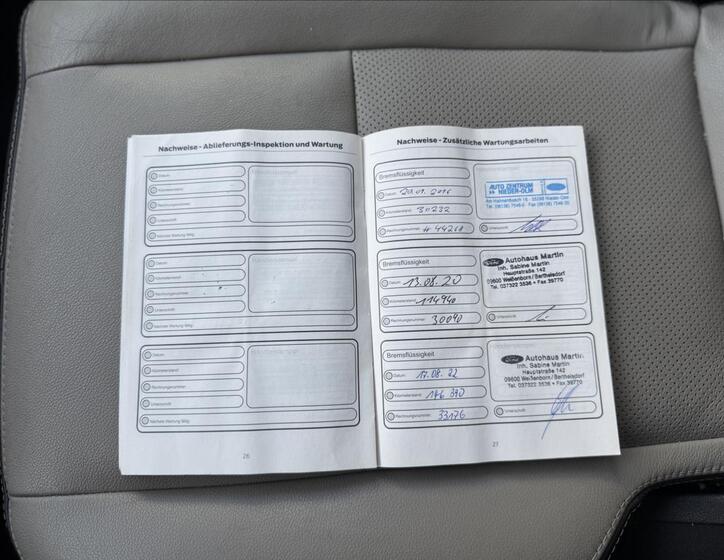 Nachweise - Ablieferungs-Inspektion und Wartung
Datum
Kilometerstand
Rechnungsnummer
Unterschrift
Nächste Wartung fällig
Datum
Kilometerstand
Rechnungsnummer
Unterschrift
Nächste Wartung fällig
Datum
Kilometerstand
Rechnungsnummer
Unterschrift
Nächste Wartung fällig
26
Nachweise - Zusätzliche Wartungsarbeiten
Bremsflüssigkeit
Datum
Kilometerstand
Rechnungsnummer # 44260
AUTO ZENTRUM
NIEDER-OLM
Am Hahnenbusch 16 - 55268 Nieder-Olm
Unterschrift
Bremsflüssigkeit
Datum 13.08.20
Kilometerstand 114940
Rechnungsnummer 30090
Ford Autohaus Martin
Inh. Sabine Martin
Hauptstraße 142
09600 Weißenborn/Berthelsdorf
Tel. 037322 3536 • Fax 39770
Unterschrift
Bremsflüssigkeit
Datum 17.08.22
Kilometerstand 146 390
Rechnungsnummer 33176
Ford Autohaus Martin
Inh. Sabine Martin
Hauptstraße 142
09600 Weißenborn/Berthelsdorf
Tel. 037322 3536 • Fax 39770
Unterschrift
27